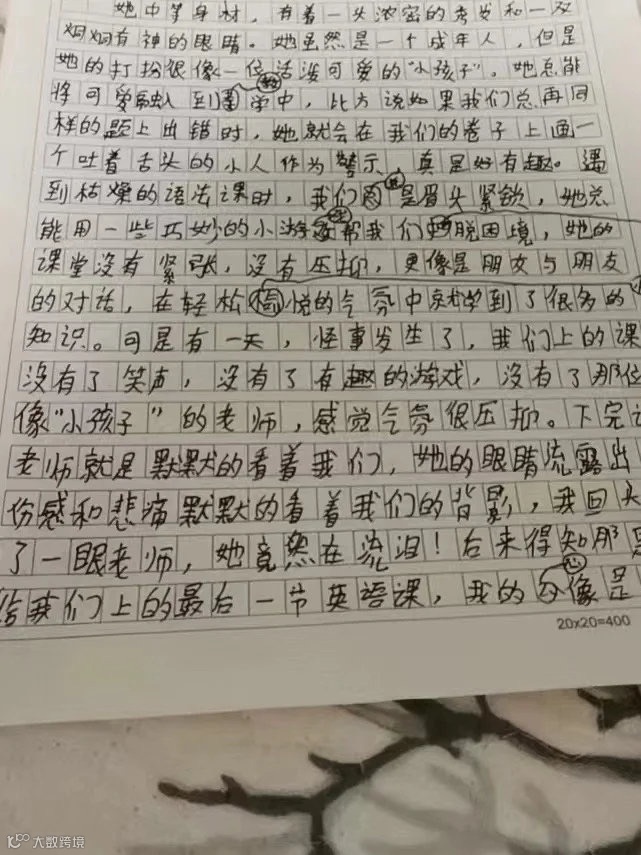 她中等身材，有着一头浓密的秀发和一双
炯炯有神的眼睛。她虽然是一个成年人，但是
她的打扮很像一位活泼可爱的“小孩子”。她总能
将可爱融入到教学中，比方说如果我们总再同
样的题上出错时，她就会在我们的卷子上画一
个吐着舌头的小人作为警示，真是好有趣。遇
到枯燥的语法课时，我们总是眉头紧锁，她总
能用一些巧妙的小游戏帮我们摆脱困境，她的
课堂没有紧张，没有压抑，更像是朋友与朋友
的对话，在轻松愉悦的气氛中就学到了很多的
知识。可是有一天，怪事发生了，我们上的课
没有了笑声，没有了有趣的游戏，没有了那位
像“小孩子”的老师，感觉气氛很压抑。下完
老师就是默默的看着我们，她的眼睛流露出
伤感和悲痛默默的看着我们的背影，我回头
了一眼老师，她竟然在流泪！后来得知那
给我们上的最后一节英语课，我的心像是
20x20=400
大数跨境